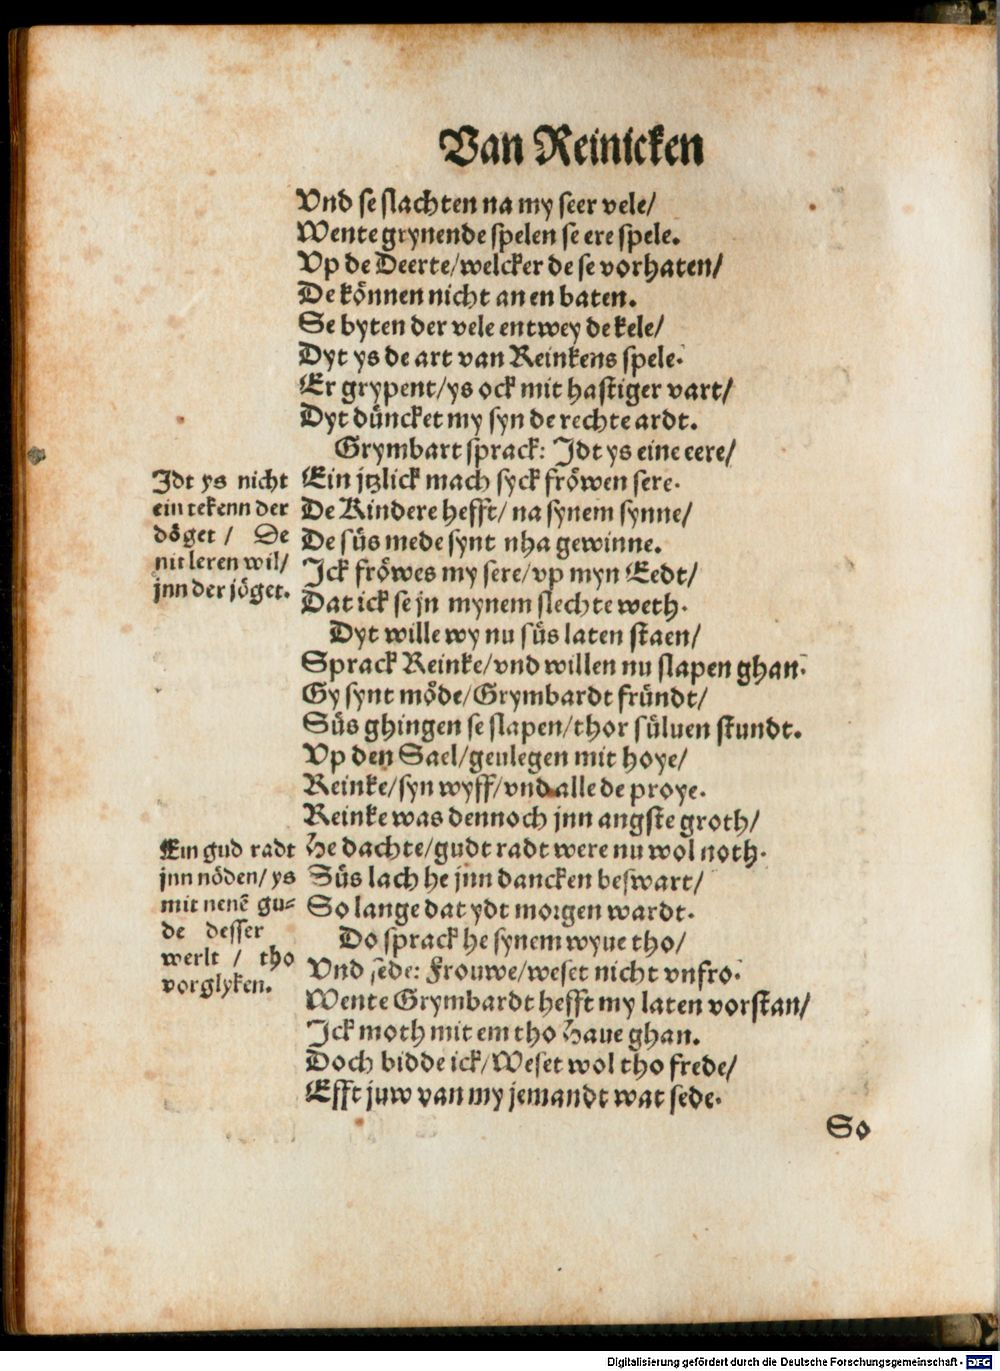 Van Reinicken
Vnd se slachten na my seer vele/
Wente grynende spelen se ere spele.
Vp de Deerte/welcker de se vorhaten/
De können nicht an en baten.
Se byten der vele entwey de kele/
Dyt ys de art van Reinkens spele.
Er grypent/ys ock mit hastiger vart/
Dyt düncket my syn de rechte ardt.
Grymbart sprack: Jdt ys eine eere/
Ein jtzlick mach syck fröwen sere.
De Kindere hefft/ na synem synne/
De süs mede synt nha gewinne.
Jck fröwes my sere/vp myn Eedt/
Dat ick se jn mynem slechte weth.
Dyt wille wy nu süs laten staen/
Sprack Reinke/vnd willen nu slapen ghan.
Gy synt möde/Grymbardt fründt/
Süs ghingen se slapen/thor süluen stundt.
Vp den Sael/geulegen mit hoye/
Reinke/syn wyff/vnd alle de proye.
Reinke was dennoch jnn angste groth/
He dachte/gudt radt were nu wol noth.
Süs lach he jnn dancken beswart/
So lange dat ydt morgen wardt.
Do sprack he synem wyue tho/
Vnd sede: Frouwe/weset nicht vnfro.
Wente Grymbardt hefft my laten vorstan/
Jck moth mit em tho Haue ghan.
Doch bidde ick/Weset wol tho frede/
Efft juw van my jemandt wat sede.
So
Jdt ys nicht
ein tekenn der
döget / De
nit leren wil/
jnn der jöget.
Ein gud radt
jnn nöden/ ys
mit nenē gu-
de desser
werlt / tho
vorglyken.
Digitalisierung gefördert durch die Deutsche Forschungsgemeinschaft - DFG